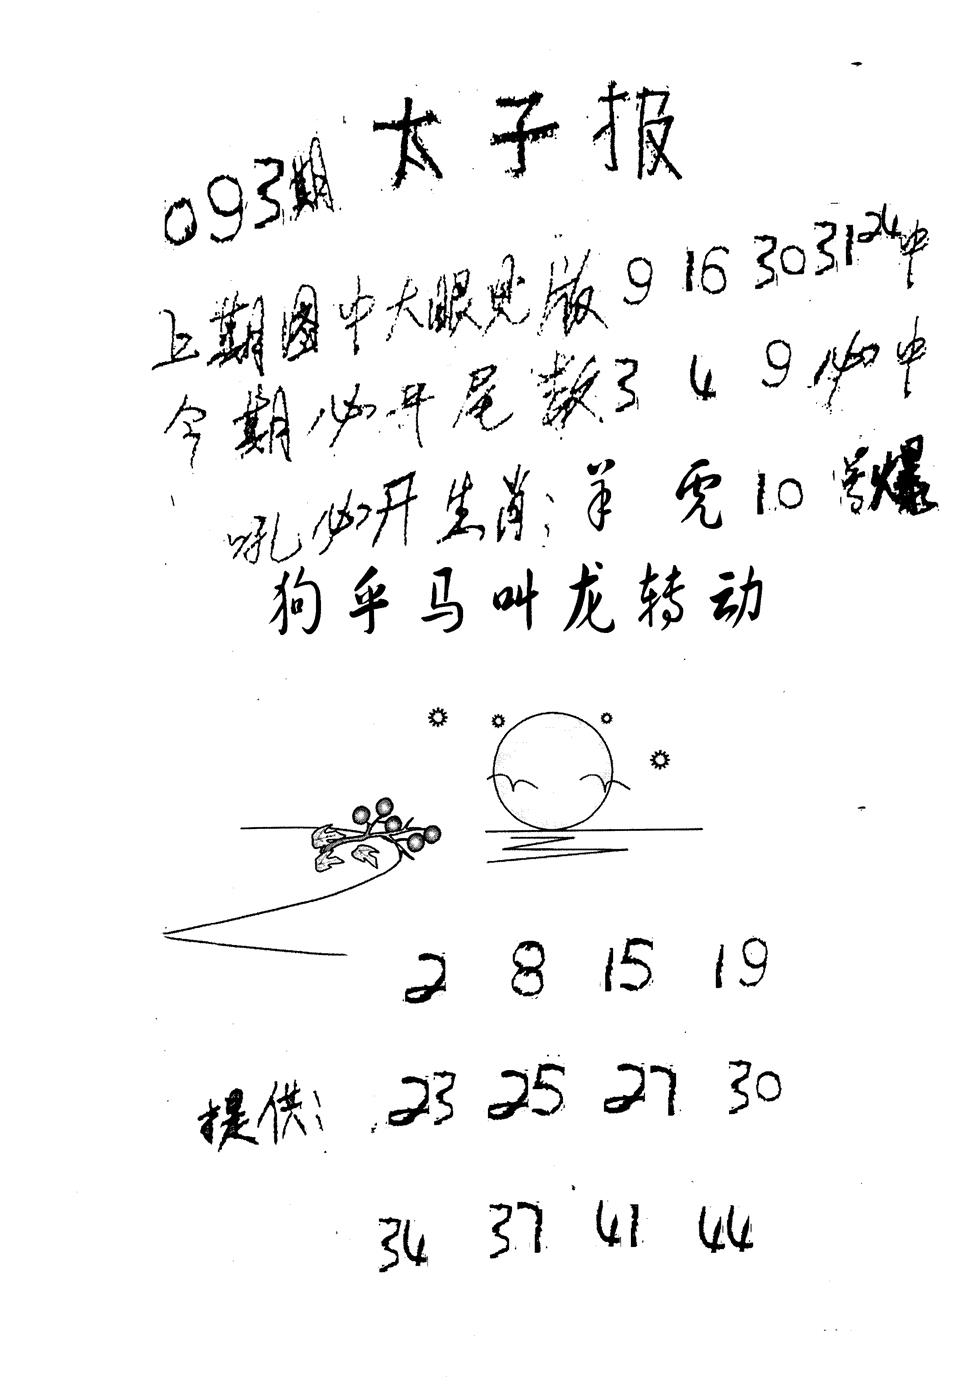 太子报
093期
上期图中大眼见版 9 16 30 31 24中
今期必开尾数3 4 9必中
吼必开生肖:羊 虎 10 号爆
狗乎马叫龙转动
2 8 15 19
提供: 23 25 27 30
34 37 41 44